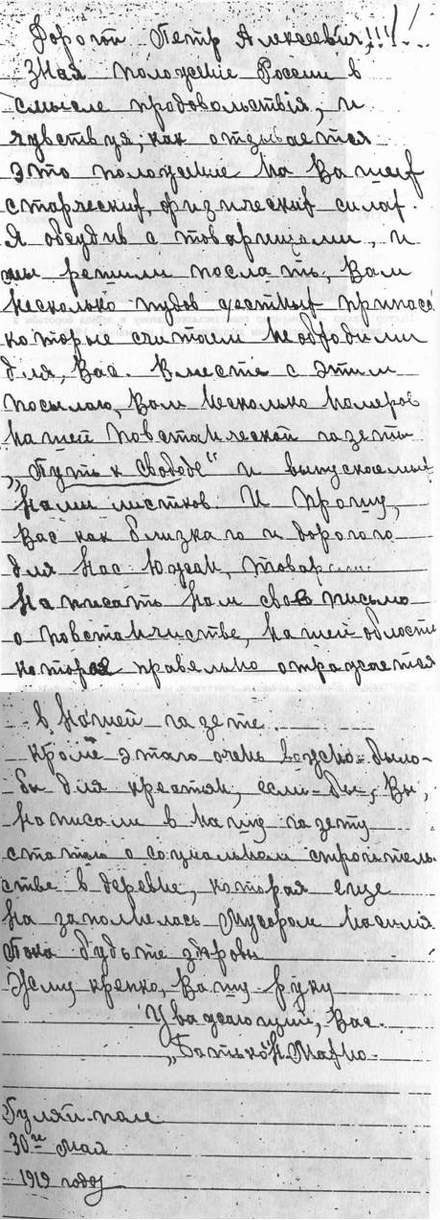 Дорогой Петр Алексеевич!!!
Зная положение России в
смысле продовольствія, и
чувствуя, как отзывается
это положение на Ваших
старческих, физических силах.
Я обсудив с товарищами, и
мы решили послать, Вам
несколько пудов съестных припасо
которые считаем необходими
для, Вас. Вместе с этим
посылаю, Вам несколько номеров
нашей повстанческой газеты
„Путь к Свободе" и выпускаемых
нами листков. И прошу,
Вас как близкаго и дорогого
для нас Южан,
написать нам свое письмо
о повстанчистве, нашей области
которое правельно отражается
в нашей газете.
Кроме этаго очень было-
бы для крестян, если-бы, Вы,
написали в нашу газету
статью о социальном строитель
стве в деревне, которая еще
на заполнелась мусором насилия
Пока будьте здоровы
Жму крепко, Вашу руку
Уважающий, Вас.
„Батько" Н. Махно.
Гуляй-поле
30го Мая
1919 года